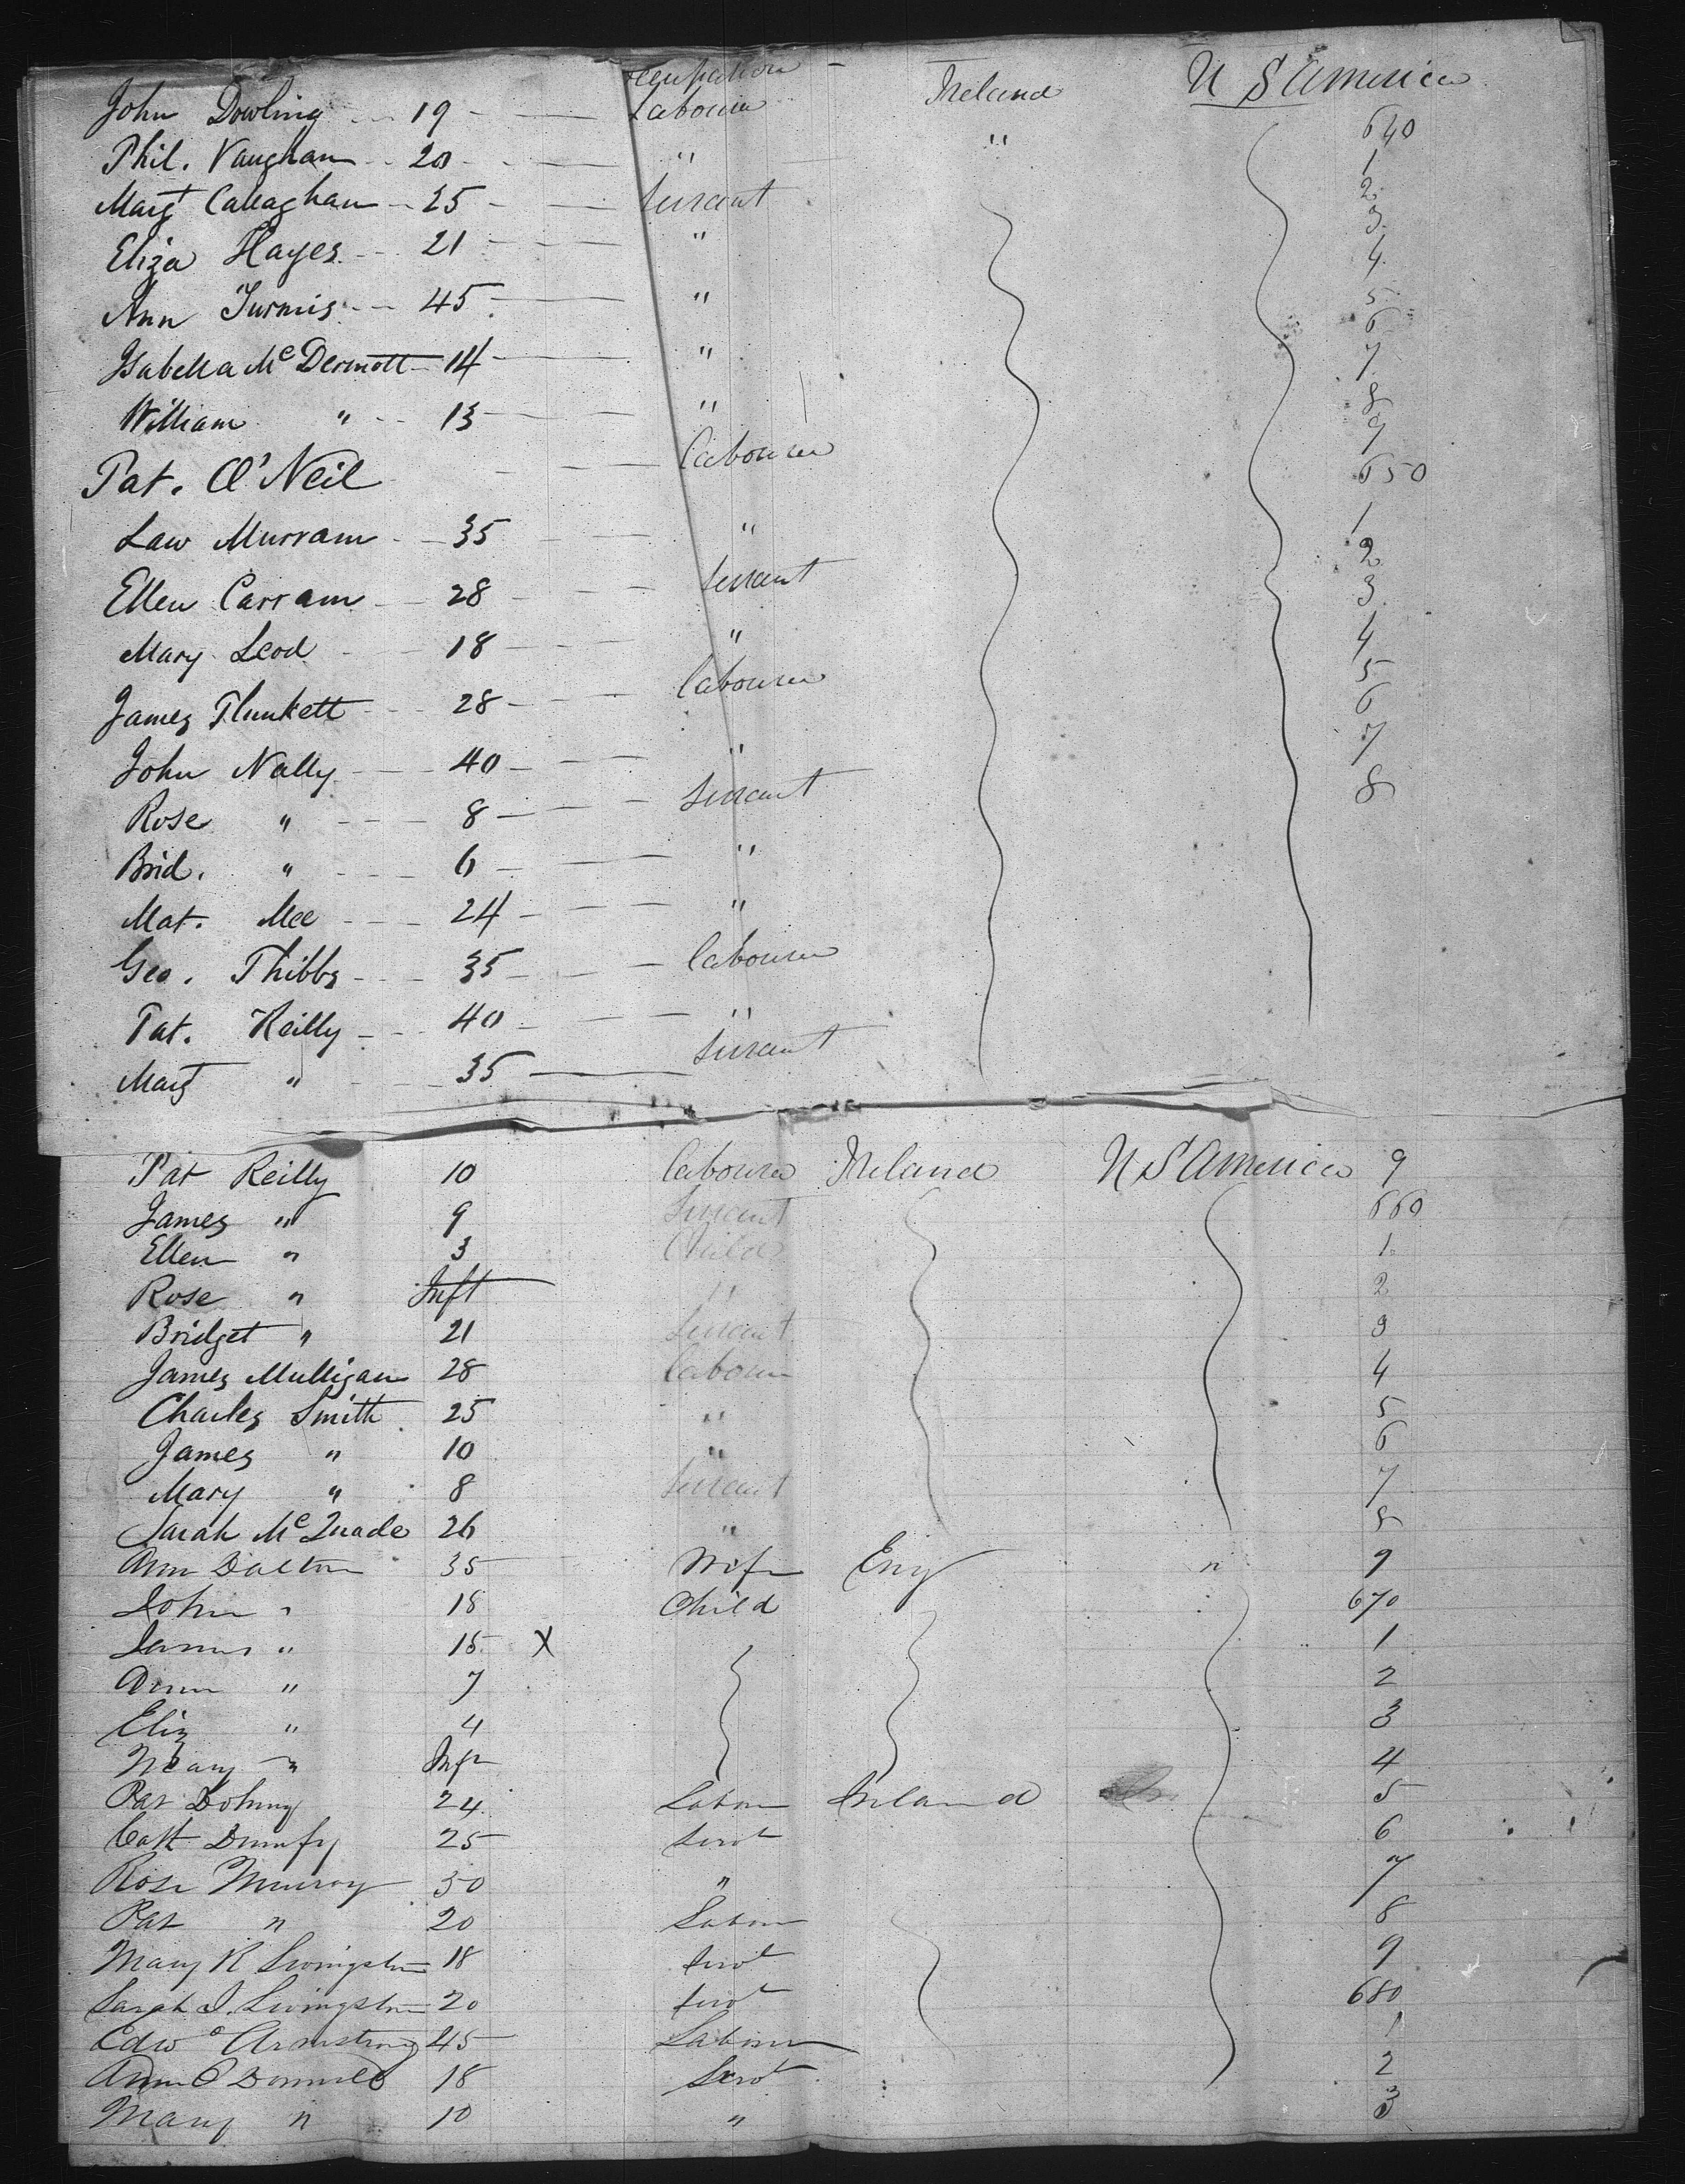 Occupation
John Dowling 19 Labourer Ireland U S America 640
Phil. Vaughan 20 " " 1
Margt Callaghan 25 Servant 2
Eliza Hayes 21 " 3
Ann Turmis 45 " 4
Isabella McDermott 14 " 5
William " 13 " 6
Pat. O'Neil labourer 7
Law Murram 35 " 8
Ellen Carram 28 Servant 9
Mary Leod 18 " 650
James Plunkett 28 labourer 1
John Nally 40 " 2
Rose " 8 Servant 3
Brid. " 6 " 4
Mat. Mee 24 " 5
Geo. Thibbs 35 labourer 6
Pat. Reilly 40 " 7
Margt " 35 Servant 8
Pat Reilly 10 labourer Ireland U S America 9
James " 9 Servant 660
Ellen " 3 Child 1
Rose " Inft " 2
Bridget " 21 Servant 3
James Mulligan 28 labourer 4
Charles Smith 25 " 5
James " 10 " 6
Mary " 8 Servant 7
Sarah McQuade 26 " 8
Ann Dalton 35 Wife Eng " 9
John " 18 Child 670
James " 15 X 1
Ann " 7 2
Eliz " 4 3
Mary " Inft 4
Pat Dohny 24 Labour Ireland 5
Cath Dunfy 25 Servt 6
Rose Murray 30 " 7
Pat " 20 Labour 8
Mary R Livingston 18 Servt 9
Sarah J. Livingston 20 Servt 680
Edwd Armstrong 45 Labour 1
Ann O Donnell 18 Servt 2
Mary " 10 " 3